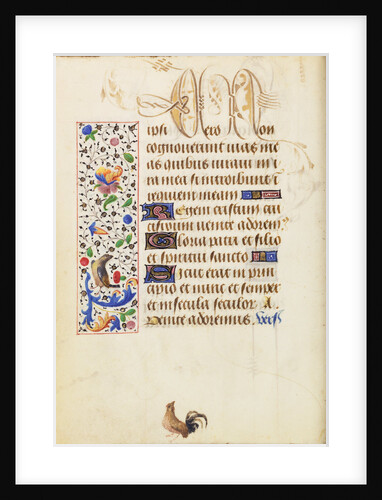 ipsi vero non
cognoverunt vias me
as quibus iuravi in i
ra mea si introibunt i
requiem meam
Regem
venite adorem
Gloria patri et filio
et spiritui sancto
Sicut erat in prin
cipio et nunc et semper
et in secula seculor A
Venite adoremus. Vers